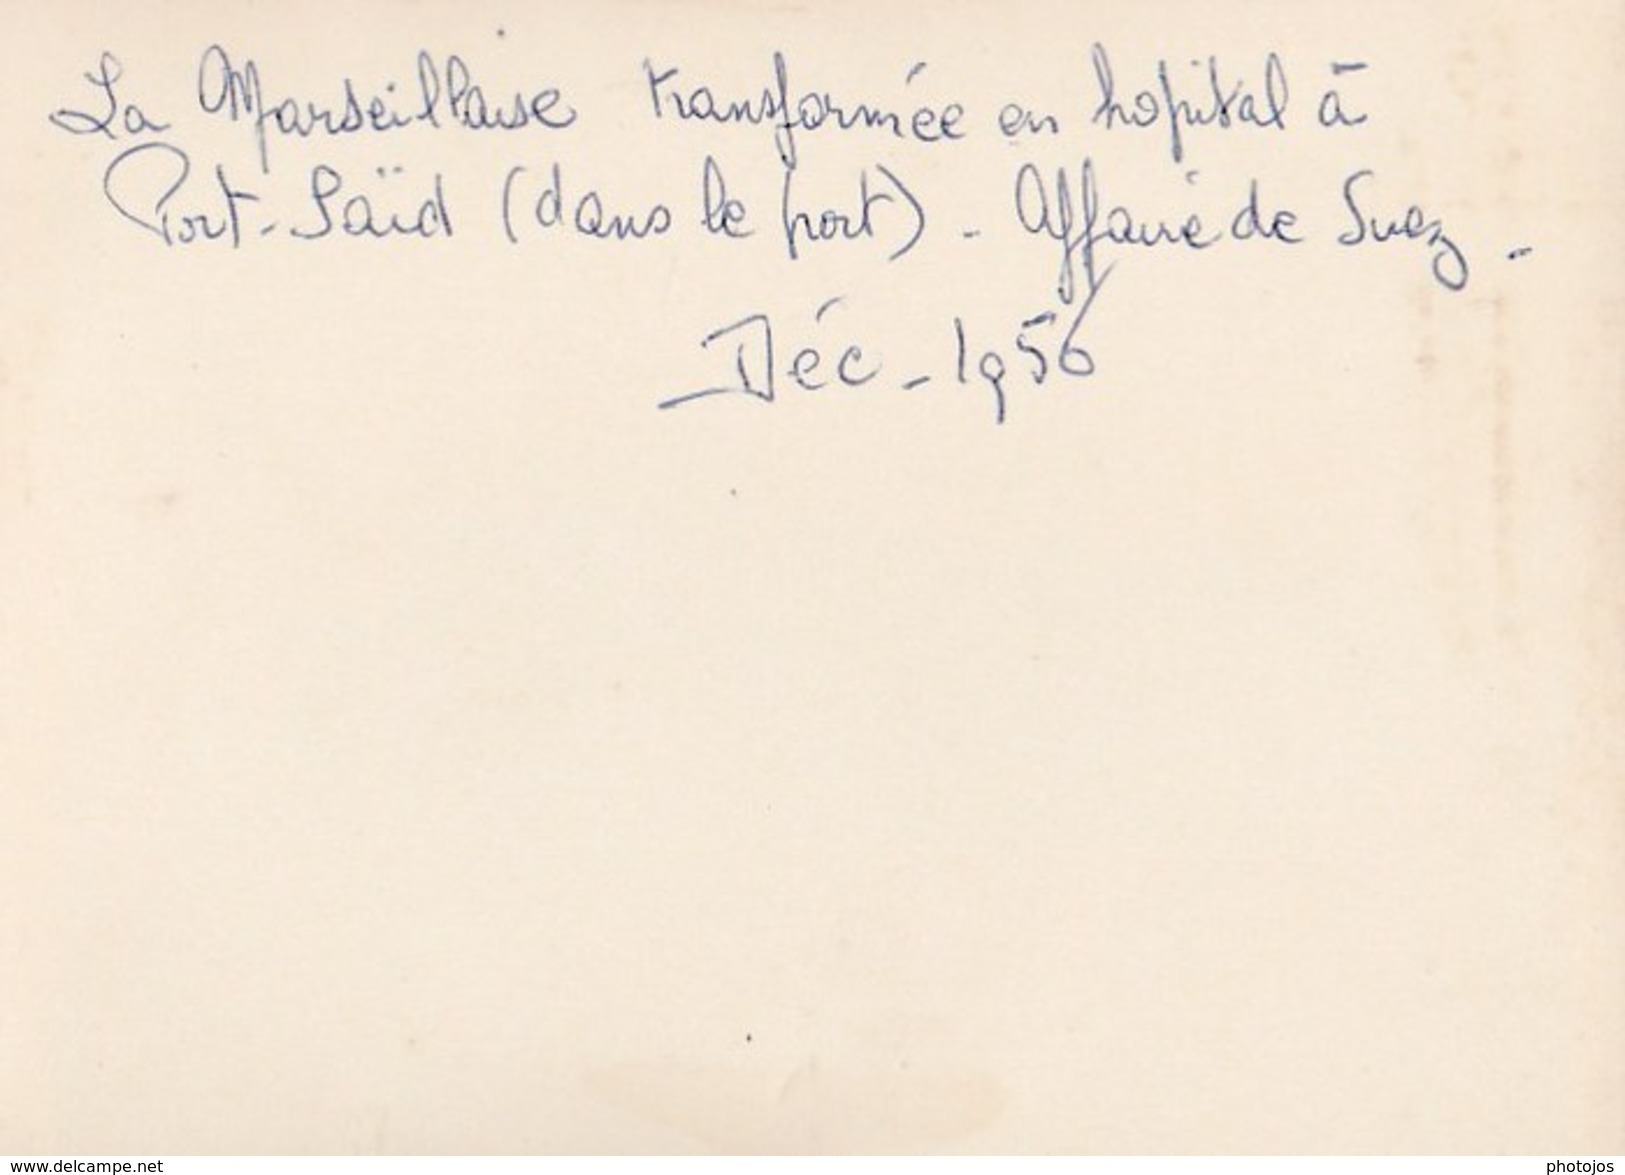 La Marseillaise transformée en hopital à
Port-Saïd (dans le port) - Affaire de Suez -
Déc - 1956
www.delcampe.net
photojos